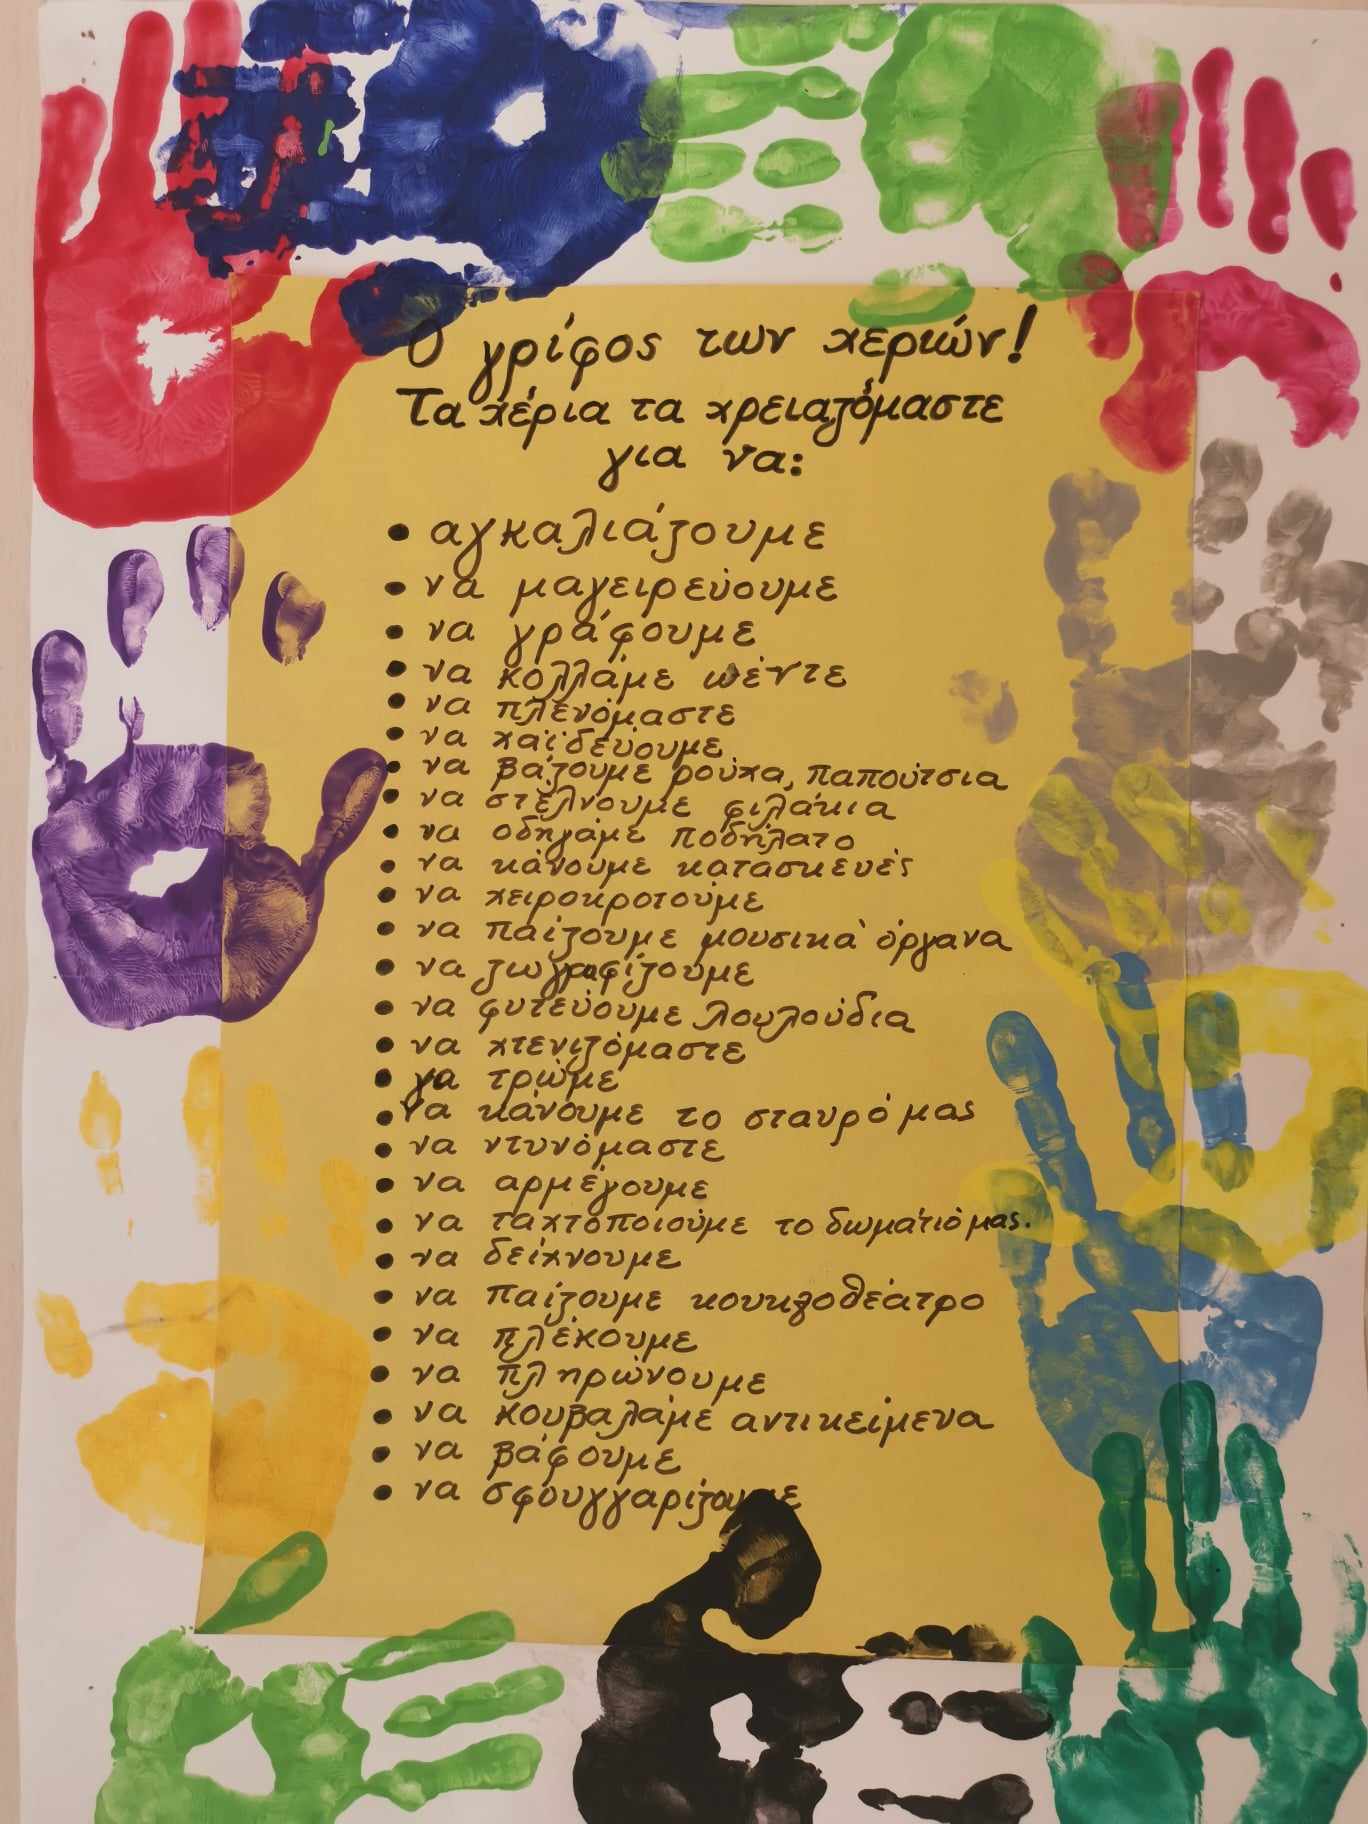 Ο γρίφος των χεριών!
Τα χέρια τα χρειαζόμαστε
για να:
• αγκαλιάζουμε
• να μαγειρεύουμε
• να γράφουμε
• να κολλάμε πέντε
• να πλενόμαστε
• να χαϊδεύουμε
• να βάζουμε ρούχα, παπούτσια
• να στέλνουμε φιλάκια
• να οδηγάμε ποδήλατο
• να κάνουμε κατασκευές
• να χειροκροτούμε
• να παίζουμε μουσικά όργανα
• να ζωγραφίζουμε
• να φυτεύουμε λουλούδια
• να χτενιζόμαστε
• να τρώμε
• να κάνουμε το σταυρό μας
• να ντυνόμαστε
• να αρμέγουμε
• να ταχτοποιούμε το δωμάτιό μας.
• να δείχνουμε
• να παίζουμε κουκλοθέατρο
• να πλέκουμε
• να πληρώνουμε
• να κουβαλάμε αντικείμενα
• να βάφουμε
• να σφουγγαρίζουμε